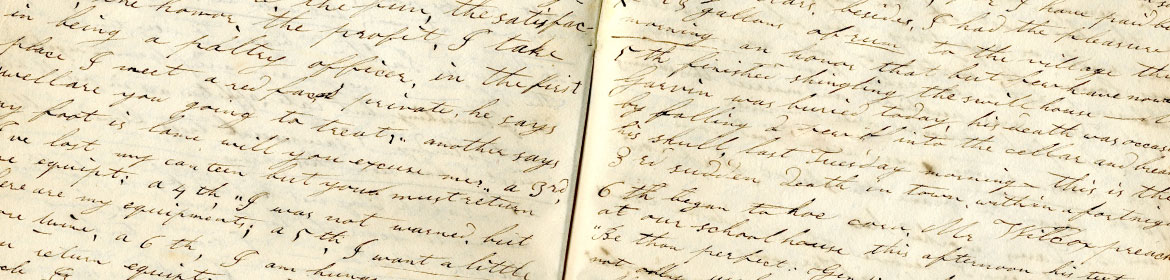 the honor, the profit, the fun, the satisfac
in being a paltry officer, I take
place I meet a red faced private, he says in the first
well are you going to treat;" another says
my foot is lame will you excuse me;" a 3rd,
I've lost my canteen but you must return
me equipt: a 4th, "I was not warned, but
here are my equipments; a 5th I want a little
more wine, a 6th, I am hungry
return equipt
besides, I had the pleasure
gallons of rum to the village th
morning an honor that but few have now
5th finished shingling the swill house
Garvin was buried today, his death was occas
by falling a new into the cellar and break
his skull, last Tuesday morning this is the
3rd sudden death in town, within a fortnig
6th began to hoe corn, Mr Wilcox preach
at our schoolhouse this afternoon his
"Be thou perfect."
not only